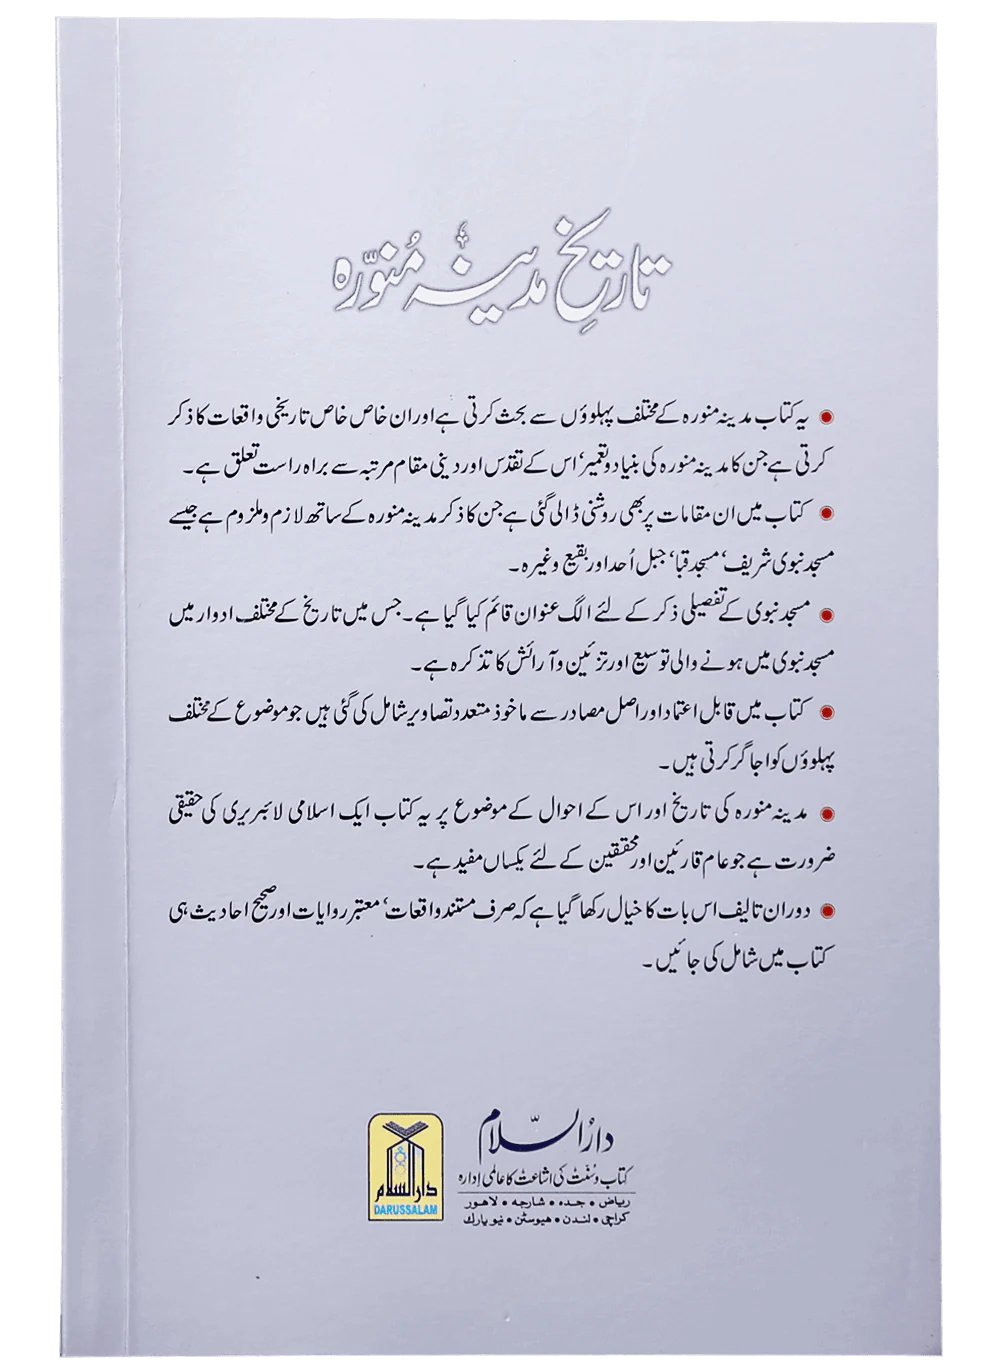 تاریخ مدینہ مُنوّرہ
یہ کتاب مدینہ منورہ کے مختلف پہلوؤں سے بحث کرتی ہے اور ان خاص خاص تاریخی واقعات کا ذکر
کرتی ہے جن کا مدینہ منورہ کی بنیاد و تعمیر، اس کے تقدس اور دینی مقام مرتبہ سے براہ راست تعلق ہے۔
کتاب میں ان مقامات پر بھی روشنی ڈالی گئی ہے جن کا ذکر مدینہ منورہ کے ساتھ لازم و ملزوم ہے جیسے
مسجد نبوی شریف، مسجد قبا، جبل اُحد اور بقیع وغیرہ۔
مسجد نبوی کے تفصیلی ذکر کے لئے الگ عنوان قائم کیا گیا ہے۔ جس میں تاریخ کے مختلف ادوار میں
مسجد نبوی میں ہونے والی توسیع اور تزئین و آرائش کا تذکرہ ہے۔
کتاب میں قابل اعتماد اور اصل مصادر سے ماخوذ متعدد تصاویر شامل کی گئی ہیں جو موضوع کے مختلف
پہلوؤں کو اجاگر کرتی ہیں۔
مدینہ منورہ کی تاریخ اور اس کے احوال کے موضوع پر یہ کتاب ایک اسلامی لائبریری کی حقیقی
ضرورت ہے جو عام قارئین اور محققین کے لئے یکساں مفید ہے۔
دوران تالیف اس بات کا خیال رکھا گیا ہے کہ صرف مستند واقعات، معتبر روایات اور صحیح احادیث ہی
کتاب میں شامل کی جائیں۔
دارُالسّلام
کتاب و سُنّت کی اشاعت کا عالمی اِدارہ
ریاض • جدہ • شارجہ • لاهور
کراچی • لندن • هیوسٹن • نیو یارك
دارالسلام
DARUSSALAM